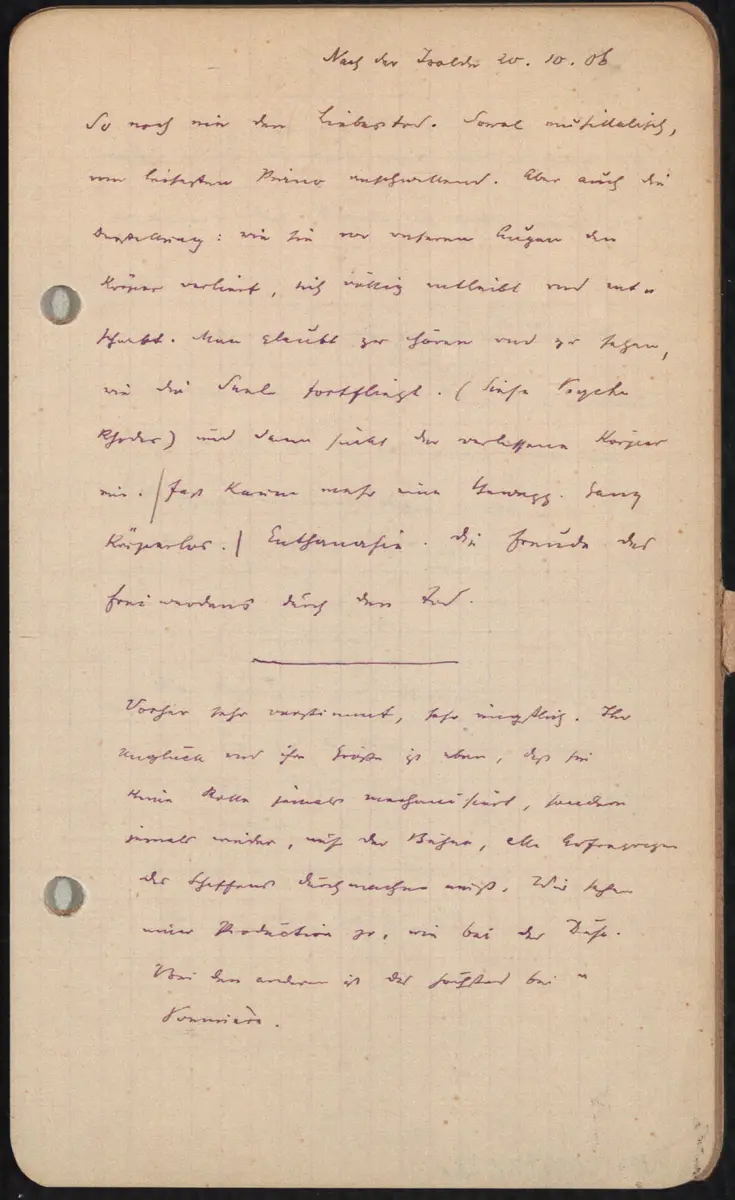 Nach der Isolde 20. 10. 06
So noch nie den Liebestod. Sowol musikalisch,
vom leisesten Piano anschwellend. Aber auch die
Darstellung: wie sie vor unseren Augen den
Körper verliert, sich völlig entleibt und ent-
schwebt. Man glaubt zu hören und zu sehen,
wie die Seele fortfliegt. (Siehe Psyche
Rhodes) und dann sinkt der verlassene Körper
ein. / Fast kaum mehr eine Bewegg. Ganz
Körperlos. / Euthanasie. Die Freude des
frei werdens durch den Tod.
Vorher sehr verstimmt, sehr ängstlich. Ihr
Unglück und ihre Größe ist eben, daß sie
keine Rolle jemals mechanisirt, sondern
jemals wieder, auf der Bühne, alle Erregungen
des Schaffens durchmachen muß. Wir sehen
einer Production zu, wie bei der Duse.
Bei den anderen ist das höchstens bei
Premièren.